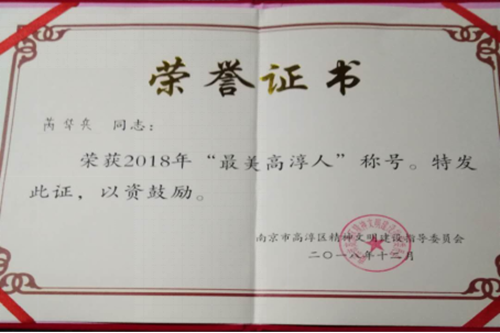 荣誉证书
芮华兵 同志：
荣获2018年“最美高淳人”称号。特发
此证，以资鼓励。
南京市高淳区精神文明建设指导委员会
二〇一八年十二月